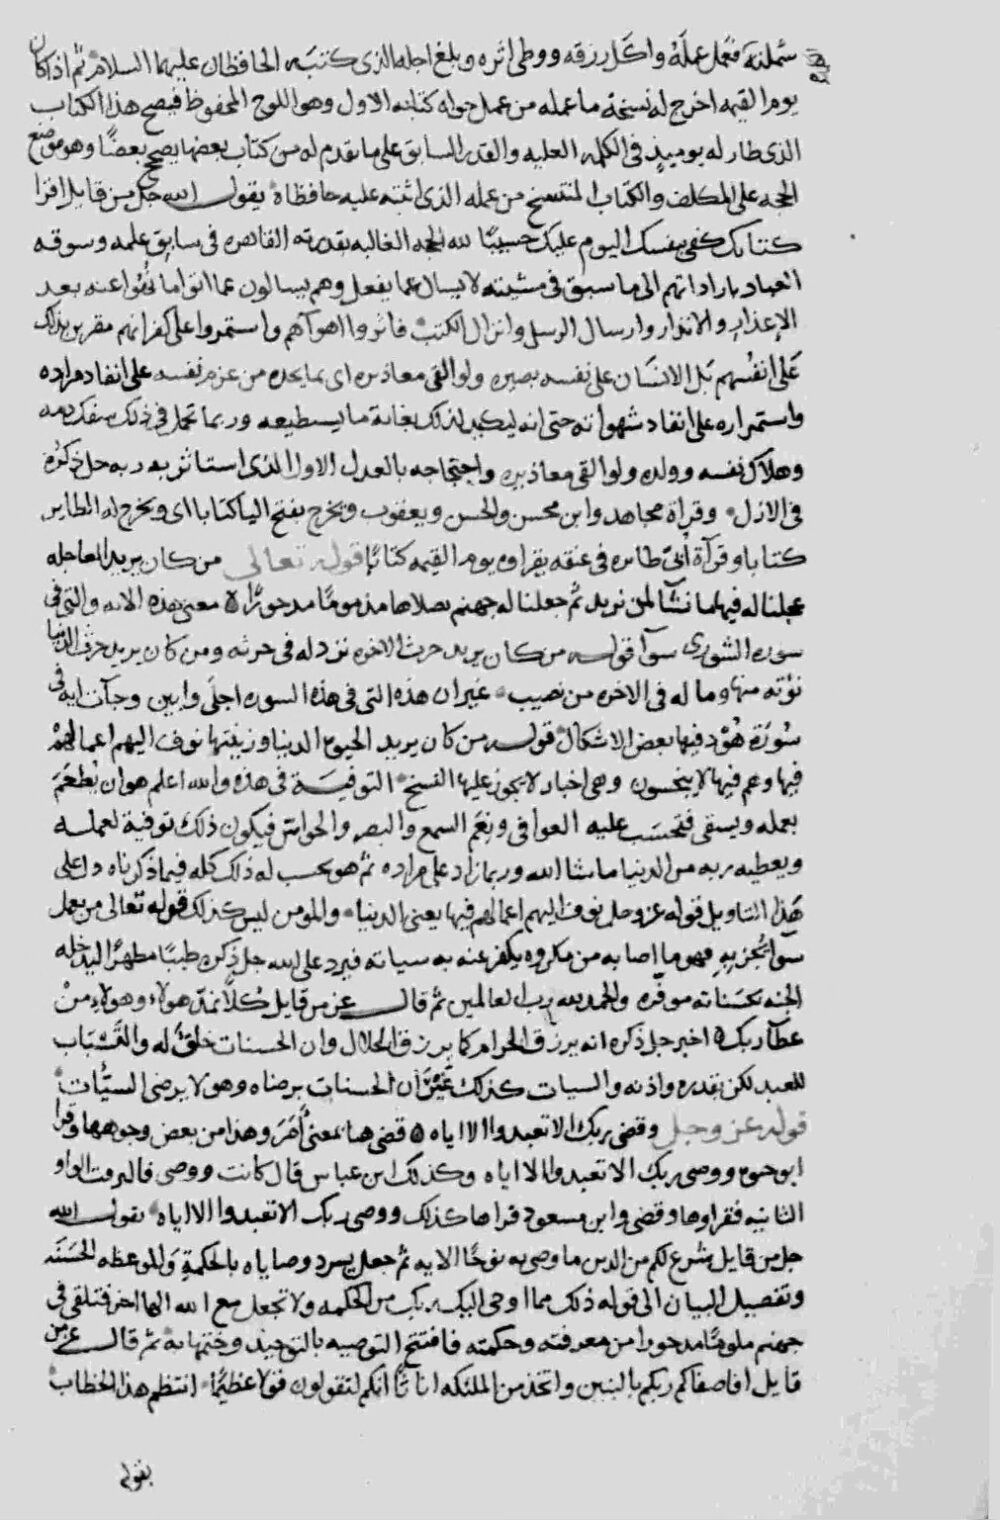 شملته فعمل عمله واكل رزقه ووطى اثره وبلغ اجله الذى كتبه الحافظان عليهما السلام ثم اذا كان
يوم القيمه اخرج له نسخة ما عمله من عمل حواه كتابه الاول وهو اللوح المحفوظ فيصح هذا الكتاب
الذى طار له يوميذ فى الكلمه العليه والقدر السابق على ما تقدم له من كتاب بعضها يصحح بعضا وهو موضع
الحجه على المكلف والكتاب المنتسخ من عمله الذى اثبته عليه حافظاه يقول الله جل من قايل اقرا
كتابك كفى بنفسك اليوم عليك حسيبا لله الحجه الغالبه بقدرته القاهره فى سابق علمه وسوقه
العباد باراداتهم الى ما سبق فى مشيته لا يسال عما يفعل وهم يسالون عما اتوا ما نهوا عنه بعد
الإعذار والانذار وارسال الرسل وانزال الكتب فاثروا اهواهم واستمروا على كفرانهم مقرين بذلك
على انفسهم بل الانسان على نفسه بصيره ولو القى معاذيره اى بما يجده من عزم نفسه على انفاد مراده
واستمراره على انفاد شهواته حتى انه ليكيد لذلك بغاية ما يستطيعه وربما تحمل فى ذلك سفك دمه
وهلاك نفسه وولده ولو القى معاذيره واحتجاجه بالعدل الاول الذى استاثر به ربه جل ذكره
فى الازل وقراة مجاهد وابن محيصن والحسن ويعقوب ويخرج بفتح اليا كتابا اى ويخرج له الطاير
كتابا وقرآة ابىّ طائره فى عنقه يقراوه يوم القيمه كتابا قوله تعالى من كان يريد العاجله
عجلنا له فيها ما نشآ لمن نريد ثم جعلنا له جهنم يصلاها مذموما مدحورا معنى هذه الايه والتى فى
سوره الشورى سوآ قوله من كان يريد حرث الاخره نزد له فى حرثه ومن كان يريد حرث الدنيا
نؤته منها وما له فى الاخره من نصيب غير ان هذه التى فى هذه السوره اجلى وابين وجآت ايه فى
سورة هود فيها بعض الاشكال قوله من كان يريد الحيوه الدنيا وزينتها نوف اليهم اعمالهم
فيها وهم فيها لا يبخسون وهى اخبار لا يجوز عليها النسخ التوفيـة فى هذه والله اعلم هو ان يطعم
بعمله ويسقى فتحسب عليه العوافى ونعم السمع والبصر والحواس فيكون ذلك توفية لعمله
ويعطيه ربه من الدنيا ما شا الله وربما زاد على مراده ثم هو يحسب له ذلك كله فيما ذكرناه دل على
هذا التاويل قوله عز وجل نوف اليهم اعمالهم فيها يعنى الدنيا والمومن ليس كذلك قوله تعالى من يعمل
سوآ يجز به فهو ما اصابه من مكروه يكفر عنه به سياته فيرد على الله جل ذكره طيبا مطهرا ليدخله
الجنه بحسناته موفره والحمد لله رب العالمين ثم قال عز من قايل كلا نمد هولاء وهولاء من
عطآ ربك اخبر جل ذكره انه يرزق الحرام كما يرزق الحلال وان الحسنات خلق له والتسباب
للعبد لكن بقدره واذنه والسيات كذلك غير ان الحسنات برضاه وهو لا يرضى السيّأت
قوله عز وجل وقضى ربك الا تعبدوا الا اياه قضى هنا بمعنى أمر وهذا من بعض وجوهها وقرا
ابو حيوه ووصى ربك الا تعبدوا الا اياه وكذلك ابن عباس قال كانت ووصى فالزقت الواو
الثانيه فقراوها وقضى وابن مسعود قراها كذلك ووصى ربك الا تعبدوا الا اياه يقول الله
جل من قايل شرع لكم من الدين ما وصى به نوحا الايه ثم جعل يسرد وصاياه بالحكمة والموعظه الحسنه
وتفصيل البيان الى قوله ذلك مما اوحى اليك ربك من الحكمه ولا تجعل مع الله الها اخر فتلقى فى
جهنم ملوما مدحورا من معرفته وحكمته فافتتح التوصيه بالتوحيد وختمها به ثم قال عز من
قايل افاصفاكم ربكم بالبنين واتخذ من الملئكه اناثا انكم لتقولون قولا عظيما انتظم هذا الخطاب
بقوله